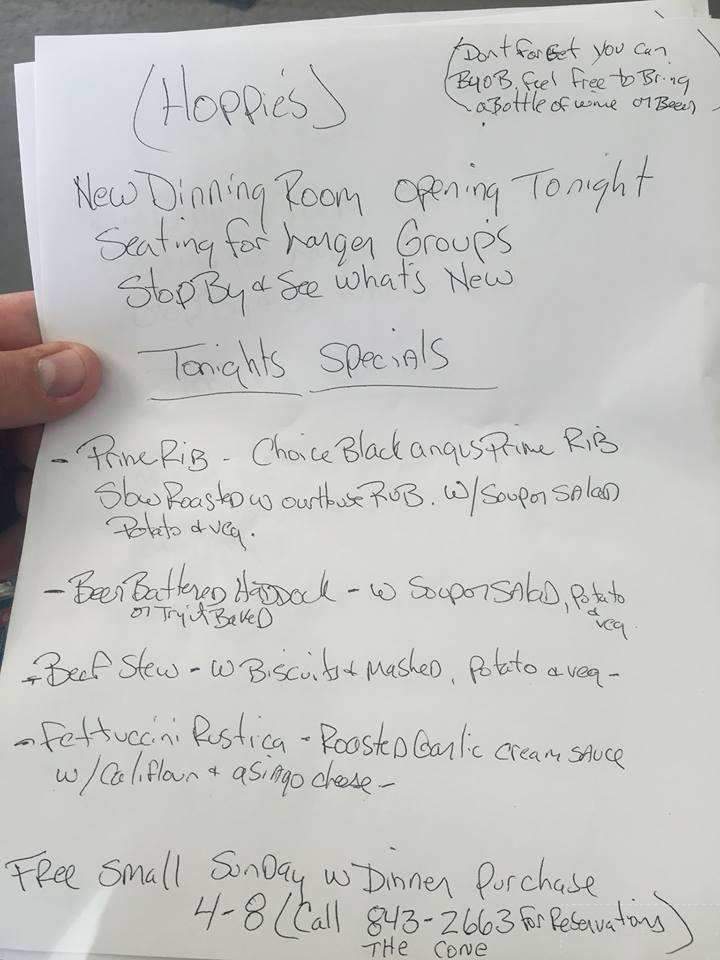 (Hoppie's)
(Dont forget you can
BYOB, feel free to Bring
a Bottle of wine or Beer)
New Dinning Room opening Tonight
Seating for Larger Groups
Stop By & See what's New
Tonights Specials
- Prime Rib - Choice Black angus Prime Rib
Slow Roasted w our House Rub. w/ Soup or Salad
Potato & veg.
- Beer Battered Haddock - w Soup or Salad, Potato
& veg
or Try it Baked
- Beef Stew - w Biscuits & Mashed, Potato & veg -
- Fettuccini Rustica - Roasted Garlic cream sauce
w/ Califlour & asiago cheese -
Free Small Sunday w Dinner Purchase
4-8 (Call 843-2663 for Reservations)
THE CONE